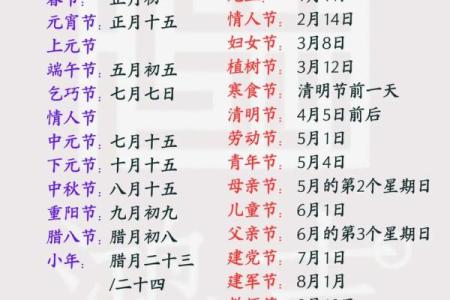 春节：正月初一
元宵节：正月十五
上元节
端午节：五月初五
乞巧节：七月七日
情人节
中元节：七月十五
下元节：十月十五
中秋节：八月十五
重阳节：九月初九
腊八节：腊月初八
小年：腊月二十三
/二十四
情人节：2月14日
妇女节：3月8日
植树节：3月12日
寒食节：清明节前一天
清明节：4月5日前后
劳动节：5月1日
青年节：5月4日
母亲节：5月的第2个星期日
儿童节：6月1日
父亲节：6月的第3个星期日
建党节：7月1日
建军节：8月1月